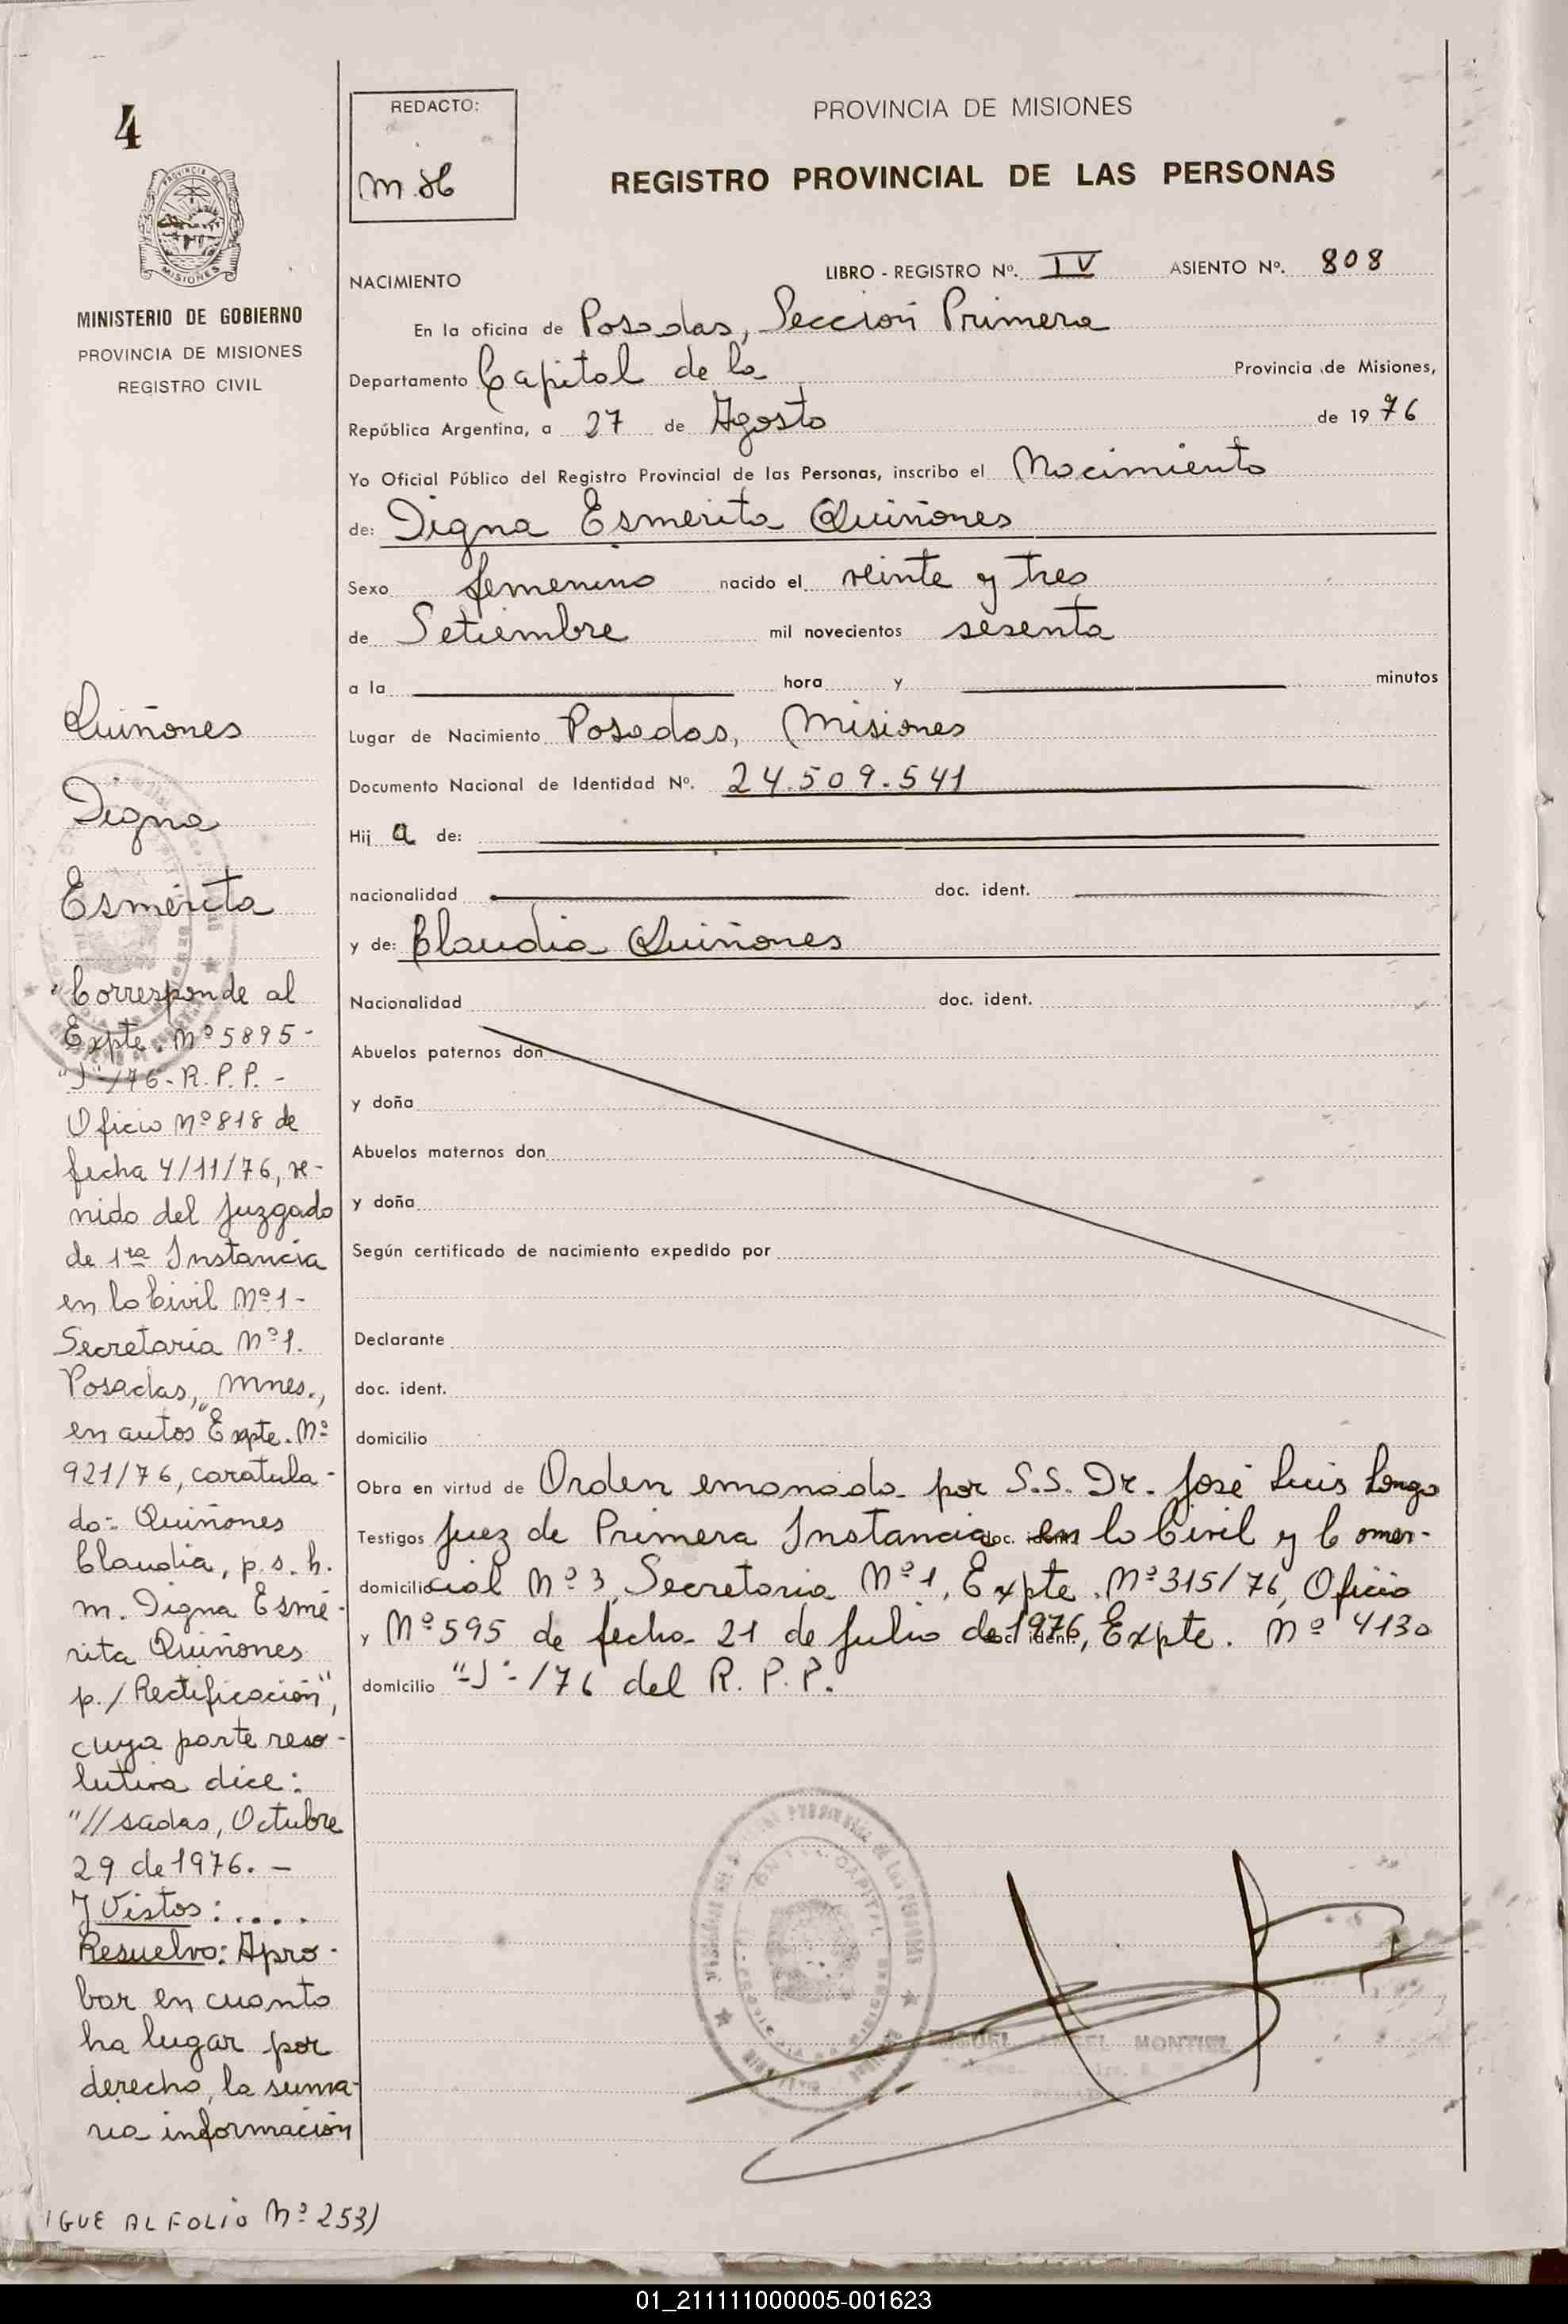 4
MISIONES
MINISTERIO DE GOBIERNO
PROVINCIA DE MISIONES
REGISTRO CIVIL
REDACTO:
PROVINCIA DE MISIONES
REGISTRO PROVINCIAL DE LAS PERSONAS
NACIMIENTO
LIBRO - REGISTRO Nº. IV ASIENTO Nº. 808
En la oficina de Posadas, Sección Primera
Departamento Capital de la Provincia de Misiones,
República Argentina, a 27 de Agosto de 1976
Yo Oficial Público del Registro Provincial de las Personas, inscribo el Nacimiento
de: Digna Esmerita Quiñones
Sexo femenino nacido el veinte y tres
de Setiembre mil novecientos sesenta
a la hora y minutos
Lugar de Nacimiento Posadas, Misiones
Documento Nacional de Identidad Nº. 24.509.541
Hij a de:
nacionalidad doc. ident.
y de: Claudia Quiñones
Nacionalidad doc. ident.
Abuelos paternos don
y doña
Abuelos maternos don
y doña
Según certificado de nacimiento expedido por
Declarante
doc. ident.
domicilio
Obra en virtud de Orden emanada por S.S. Dr. José Luis Longo
Testigos Juez de Primera Instancia doc. ident. en lo Civil y Comer-
domicilio cial Nº 3, Secretaria Nº 1, Expte. Nº 315/76, Oficio
y Nº 595 de fecha 21 de Julio de 1976, doc. ident. Expte. Nº 4130
domicilio "-J"-/76 del R. P. P.
MIGUEL ANGEL MONTIEL
Quiñones
Digna
Esmérita
"Corresponde al
Expte. Nº 5895-
"J"-/76-R.P.P.-
Oficio Nº 818 de
fecha 4/11/76, ve-
nido del Juzgado
de 1ra Instancia
en lo Civil Nº 1-
Secretaria Nº 1.
Posadas, Mnes.,
en autos "Expte. Nº
921/76, caratula-
do: Quiñones
Claudia, p.s.h.
m. Digna Esmé-
rita Quiñones
p./ Rectificación",
cuya parte reso-
lutiva dice:
"//sadas, Octubre
29 de 1976.-
Y Vistos:....
Resuelvo: Apro-
bar en cuanto
ha lugar por
derecho, la suma-
ria información
IGUE AL FOLIO Nº 253)
01_211111000005-001623